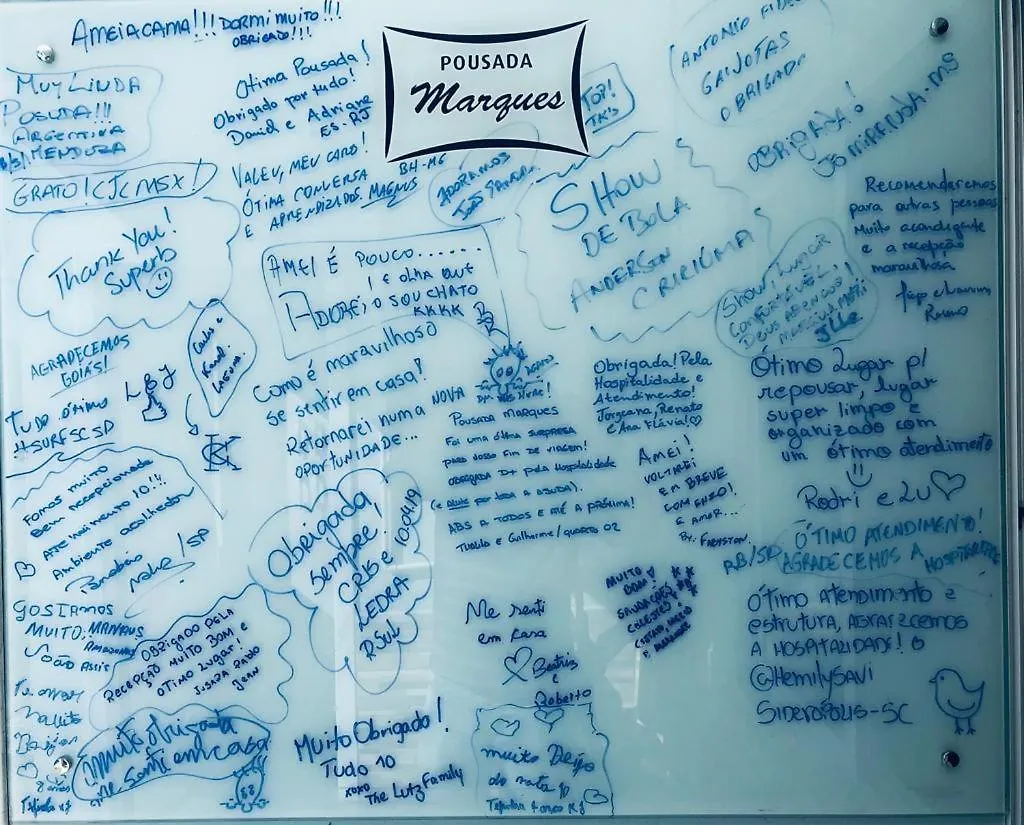 AMEI A CAMA!!! DORMI MUITO!!!
OBRIGADO!!!
POUSADA
Marques
MUY LINDA
POSADA!!!
ARGENTINA
MENDOZA
Otima Pousada!
Obrigado por tudo!
David e Adriane
ES-RJ
TOP!
ANTONIO
GAIJOTAS
OBRIGADO
OBRIGADA!
JO MIRANDA-MS
GRATO! CJC MSX!
VALEU, MEU CARO!
ÓTIMA CONVERSA
E APRENDIZADOS. MAGNUS
BH-MG
ADORAMOS
SHOW
DE BOLA
ANDERSON
CRICIÚMA
Recomendaremos
para outras pessoas
Muito aconchegante
e a recepção
maravilhosa
Thank You!
Superb
AMEI É POUCO......
! E OLHA QUE
ADOREI, O SOU CHATO
KKKK
SHOW! LUGAR
CONFORTÁVEL,
DEUS ABENÇOE
Jlle
AGRADECEMOS
GOIÁS!
Carlos e
LAGUNA
L&J
TUDO ótimo
#SURFSCSP
CK
Como é maravilhoso
se sentir em casa!
Retornarei numa NOVA
OPORTUNIDADE...
POUSADA MARQUES
FOI UMA ÓTIMA SURPRESA
PARA NOSSO FIM DE VIAGEM!
OBRIGADA D+ PELA HOSPITALIDADE
(E ALINE POR TODA A AJUDA).
ABS A TODOS E ATÉ A PRÓXIMA!
TULLIO e Guilherme/QUARTO 02
Obrigada! Pela
Hospitalidade e
Atendimento!
Jorgeana, Renato
e Ana Flávia!
AMEI!
VOLTAREI
EM BREVE
COM ENZO!
E AMOR...
Ótimo Lugar p/
repousar, lugar
super limpo e
organizado com
um ótimo atendimento
Rodri e Lu
Fomos muito
bem recepcionados
Atendimento 10!!
Ambiente acolhedor
/SP
Obrigada
sempre!
CRIS E
LEDRA
RSUL
10.04.19
ÓTIMO ATENDIMENTO!
RB/SP AGRADECEMOS A
HOSPITALIDADE
GOSTAMOS
MUITO, MANAUS
AMAZONAS
João Assis
OBRIGADO PELA
RECEPÇÃO MUITO BOM E
OTIMO LUGAR!
JUSARA PAULO
JEAN
Me senti
em casa
Beatris
e
Roberto
MUITO
BOM!
ÓTIMO ATENDIMENTO E
ESTRUTURA, AGRADECEMOS
A HOSPITALIDADE!
@HEMILYSAVI
SIDERÓPOLIS-SC
muito obrigada
me senti em casa
Muito Obrigado!
Tudo 10
XOXO
The Lutz Family
muito Beijo
do nata